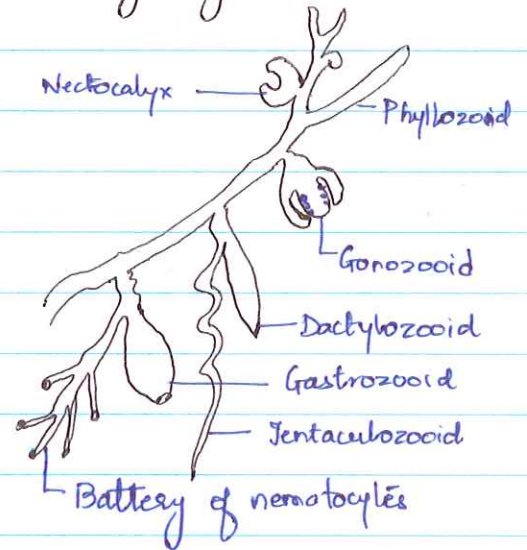 Nectocalyx
Phyllozoid
Gonozooid
Dactylozooid
Gastrozooid
Tentaculozooid
Battery of nematocytes